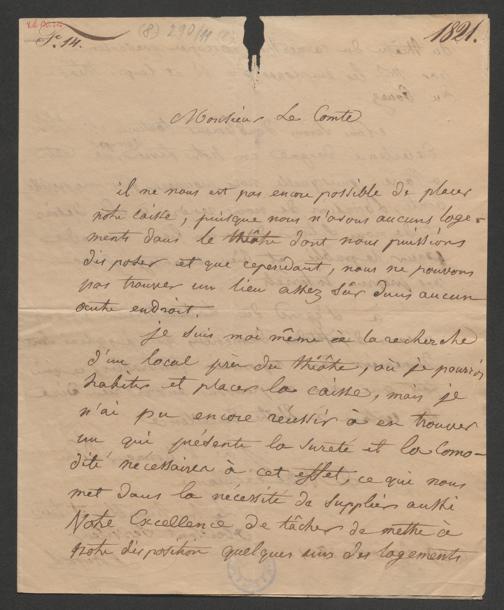 1821.
N.° 14.
(8) 290/11
Monsieur Le Comte
il ne nous est pas encore possible de placer
notre caisse, puisque nous n'avons aucuns loge-
ments dans le théâtre dont nous puissions
disposer et que cependant, nous ne pouvons
pas trouver un lieu assez sûr dans aucun
autre endroit.
je suis moi même à la recherche
d'un local près du théâtre, où je pourrois
habiter et placer la caisse, mais je
n'ai pu encore reussir à en trouver
un qui présente la sureté et la como-
dité necessaires à cet effet, ce qui nous
met dans la nécessité de supplier aussi
Votre Excellence de tâcher de mettre à
notre disposition quelques uns des logements